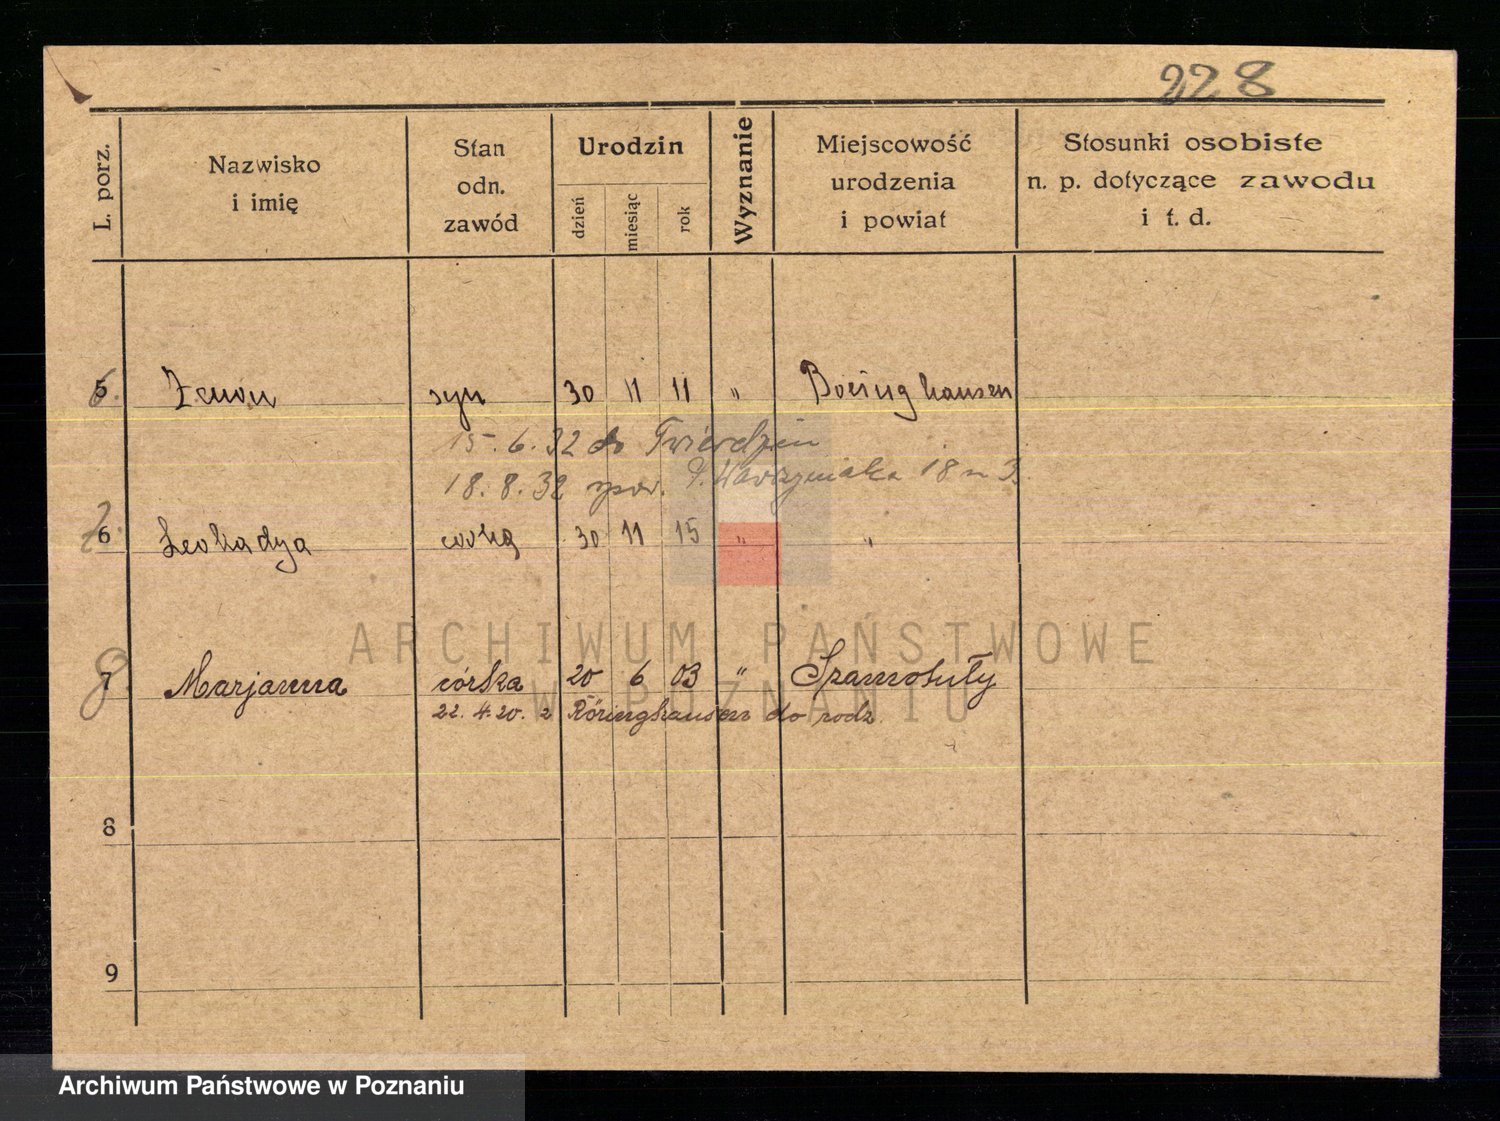 228
L. porz. Nazwisko i imię Stan odn. zawód Urodzin dzień miesiąc rok Wyznanie Miejscowość urodzenia i powiat Stosunki osobiste n. p. dotyczące zawodu i t. d.
5 6. Zenon syn 30 11 11 " Boeinghausen
15.6.32 do Twierdzin
18.8.32 spow. Wawrzyniaka 18 m 3
6 7. Leokadya córką 30 11 15 " "
ARCHIWUM PAŃSTWOWE
W POZNANIU
7 8 Marjanna córka 20 6 03 " Szamotuły
22.4.20. z Röringhausen do rodz.
8
9
Archiwum Państwowe w Poznaniu